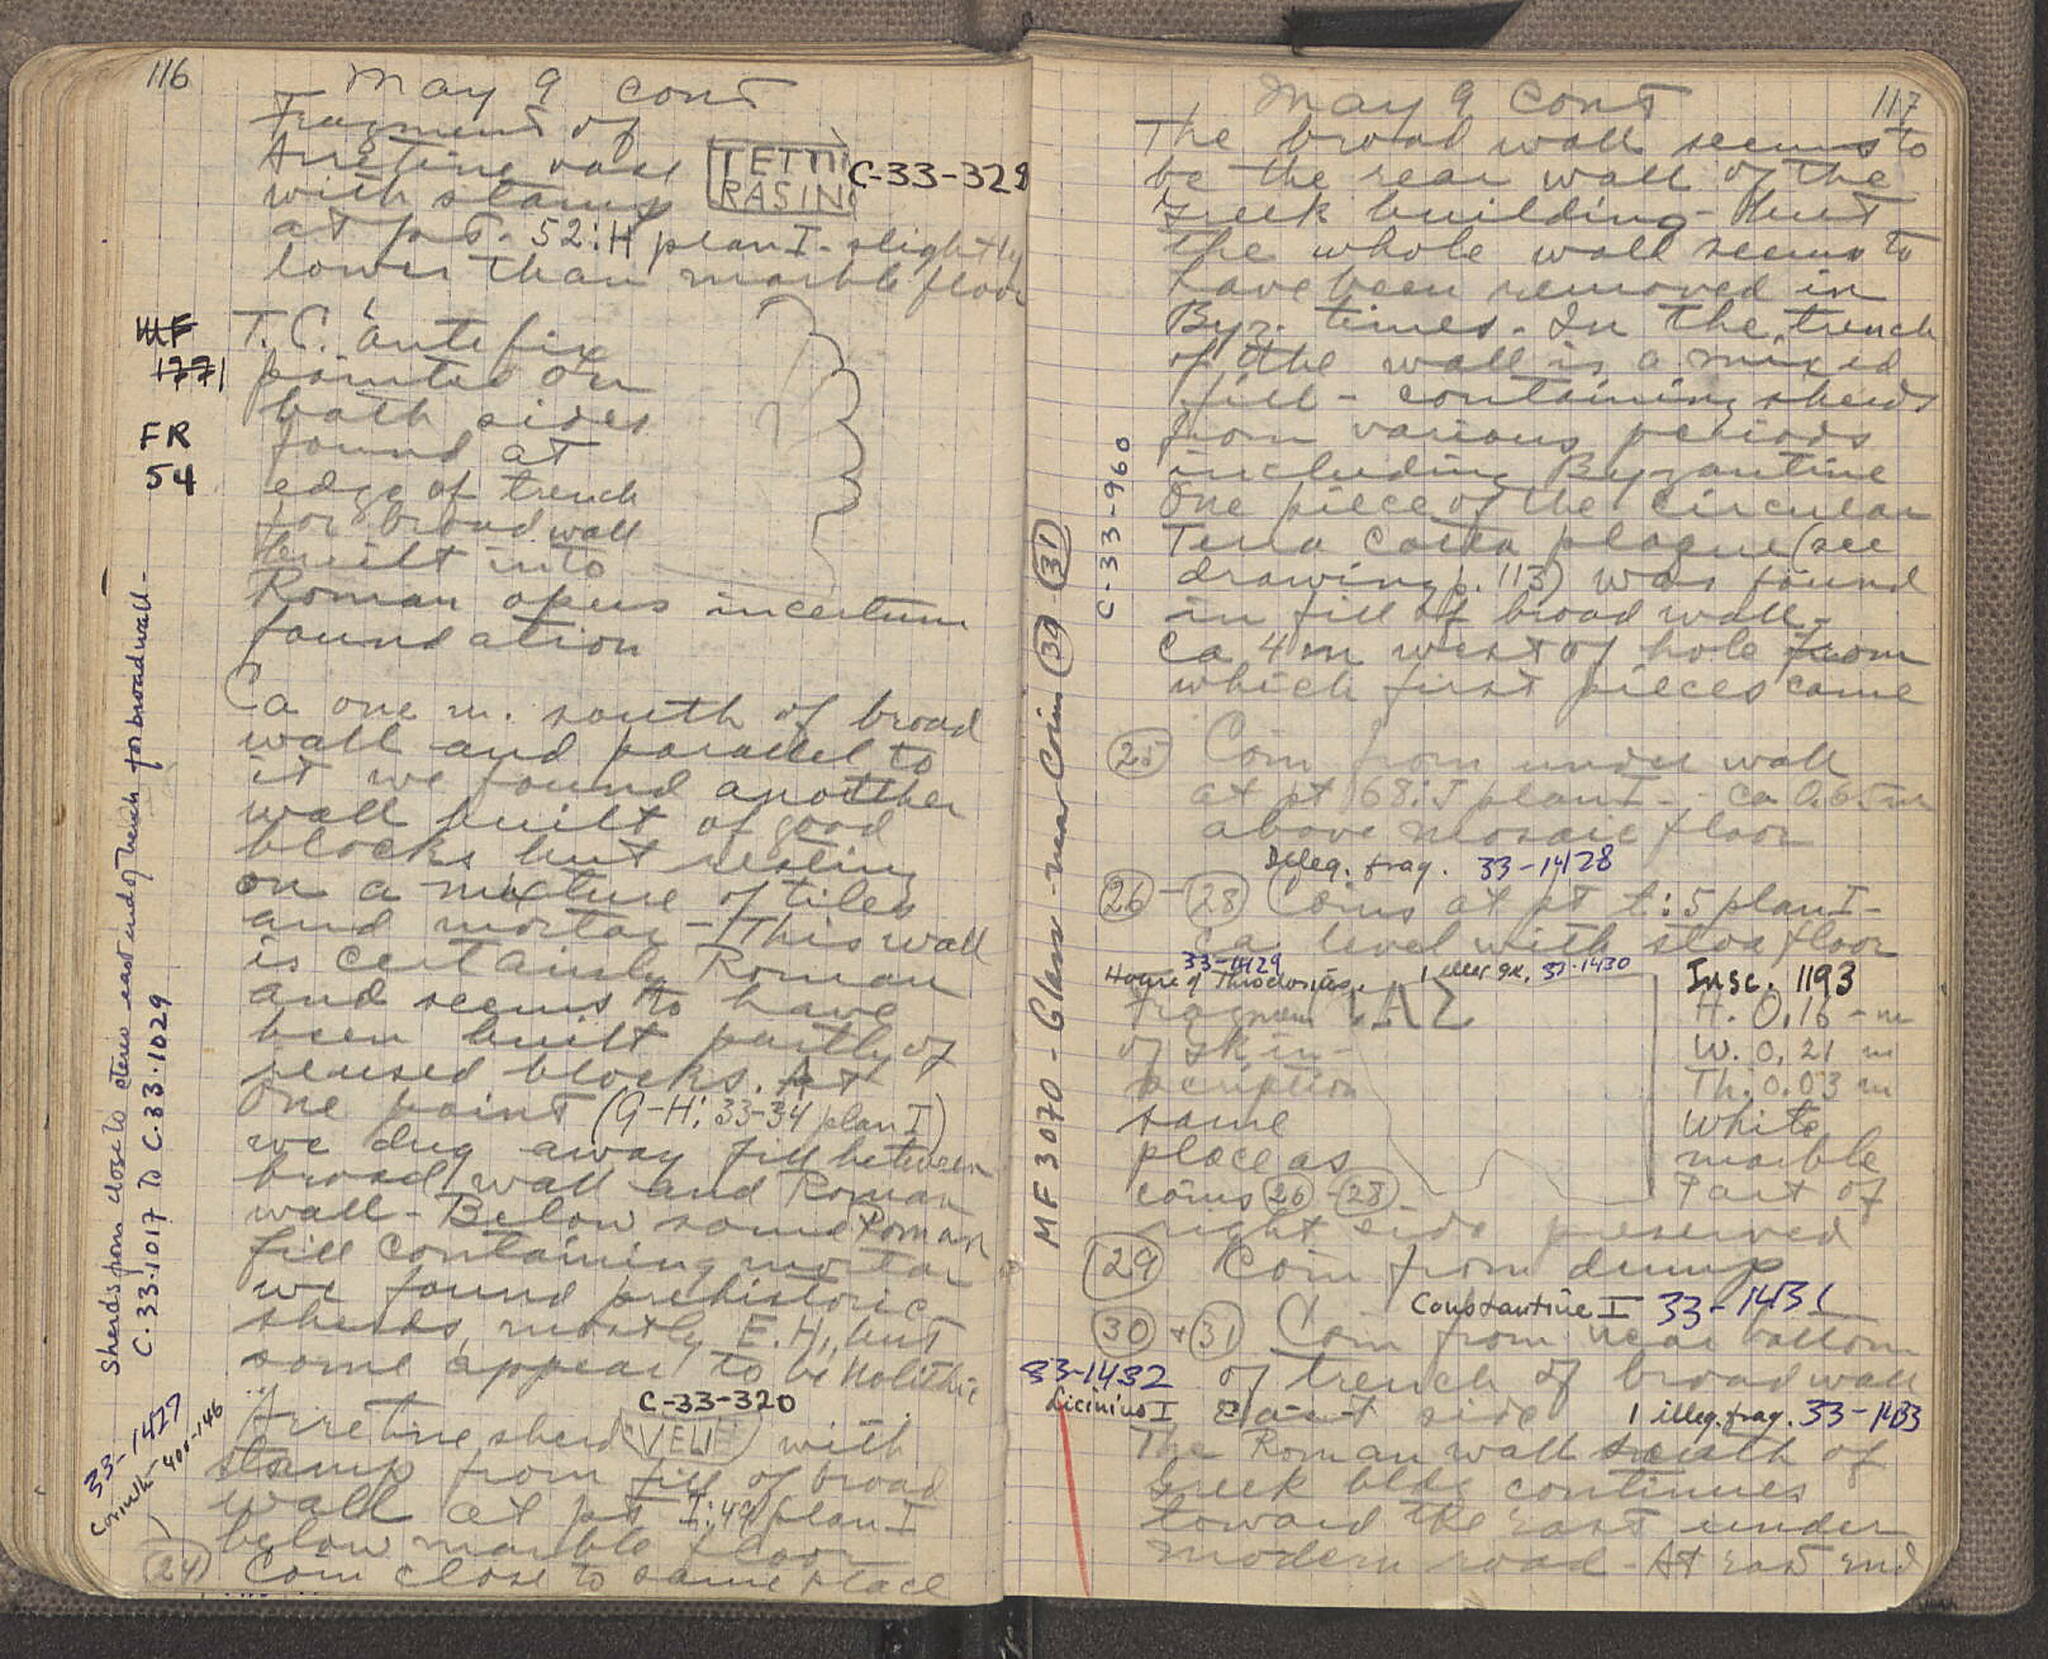 116
May 9 cont
Fragment of
Arretine vase
with stamp
TETTI
RASIN
C-33-329
at pt. 52:H plan I - slightly
lower than marble floor
MF
1771
FR
54
T. C. antefix
painted on
both sides
found at
edge of trench
for broad wall
built into
Roman opus incertum
foundation
Ca one m. south of broad
wall and parallel to
it we found another
wall built of good
blocks but resting
on a mixture of tiles
and mortar - This wall
is certainly Roman
and seems to have
been built partly of
reused blocks. At
one point (G-H: 33-34 plan I)
we dug away fill between
broad wall and Roman
wall - Below some Roman
fill containing mortar
we found prehistoric
sherds, mostly E.H., but
some appear to be Nolithic
C-33-320
Arretine sherd VELIE with
stamp from fill of broad
wall at pt I:49 plan I
below marble floor
24 Coin close to same place
33-1427
Corinth - 400-146
Sherds from close to stereo east end of trench for broad wall -
C.33.1017 to C.33.1029
117
May 9 cont
The broad wall seems to
be the rear wall of the
Greek building - but
the whole wall seems to
have been removed in
Byz. times. In the trench
of the wall is a mixed
fill - containing sherds
from various periods
including Byzantine
One piece of the circular
Terra Cotta plaque (see
drawing p. 113) was found
in fill of broad wall -
ca 4 m west of hole from
which first pieces came
C-33-960
25 Coin from under wall
at pt 68:J plan I - ca 0.65 m
above mosaic floor
Illeg. frag. 33-1428
26 - 28 Coins at pt t:5 plan I -
ca. level with stoa floor
33-1429
House of Theodosius. 1 illeg. gk. 33-1430
Fragment
of Skin-
scription
same
place as
coins 26 - 28
ΑΣ
Insc. 1193
H. 0,16 - m
W. 0,21 m
Th. 0.03 m
White
marble
Part of
right side preserved
29 Coin from dump
Constantine I 33-1431
30 + 31 Coin from near bottom
of trench of broad wall
East side 1 illeg. frag. 33-1433
33-1432
Licinius I
The Roman wall south of
Greek bldg continues
toward the east under
modern road - At east end
MF 3070 - Glass - near Coins 30 - 31